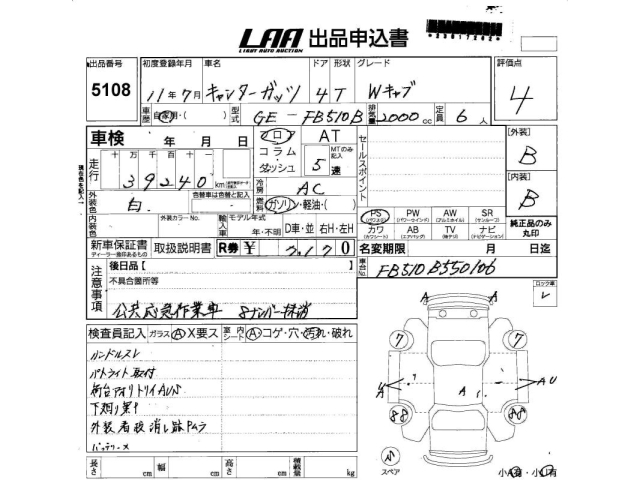 LAA 出品申込書
LIGHT AUTO AUCTION
出品番号 初度登録年月 車名 ドア 形状 グレード 評価点
5108 11年7月 キャンターガッツ 4 T Wキャブ 4
車歴 自家用・( ) 型式 GE-FB510B 排気量 2000cc 定員 6人
車検 年 月 日 フロア コラム ダッシュ AT MTのみ記入 5速 セールスポイント 【外装】 B
走行 十万千百十 39240km 冷房 AC 【内装】 B
現在色を記入
外装色 白 色替車は色替と記入 燃料 ガソリン・軽油・( )
PS (パワステ) PW (パワーウインド) AW (アルミホイル) SR (サンルーフ) 純正品のみ丸印
カワ (カワシート) AB (エアバッグ) TV (純テレ) ナビ (ナビゲーション)
内装色 外装カラーNo. 輸入車 モデル年式 年・不明 D車・並 右H・左H
新車保証書 ディーラー捺印あるもの 取扱説明書 R券 ¥ 名変期限 月 日迄
注意事項 後日品【
不具合箇所等
公共応急作業車 8ナンバー抹消
車台No. FB510B550106
ロック車 レ
検査員記入 ガラス A X要ス 室内シート A コゲ・穴・汚れ・破れ
ハンドルスレ
パトライト取付
下廻り
バッテリー×
A A
7 7
A AU
88 88
小 スペア
長さ cm 幅 cm 高さ cm 積載量 kg
小A有・小U有